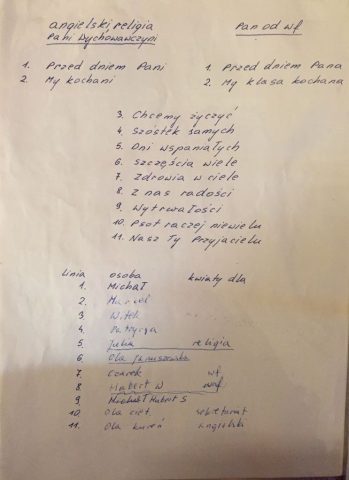 angielski religia
Pani Wychowawczyni
Pan od wf
1. Przed dniem Pani
2. My kochani
1. Przed dniem Pana
2. My klasa kochana
3. Chcemy życzyć
4. Szóstek samych
5. Dni wspaniałych
6. Szczęścia wiele
7. Zdrowia w ciele
8. Z nas radości
9. Wytrwałości
10. Psot raczej niewielu
11. Nasz Ty Przyjacielu
linia osoba kwiaty dla
1. Michał
2. Marcel
3. Witek
4. Patrycja
5. Julia religia
6. Ola Januszewska
7. Czarek wf
8. Hubert W
9. Michał Hubert S
10. Ola sekretariat
11. Ola angielski